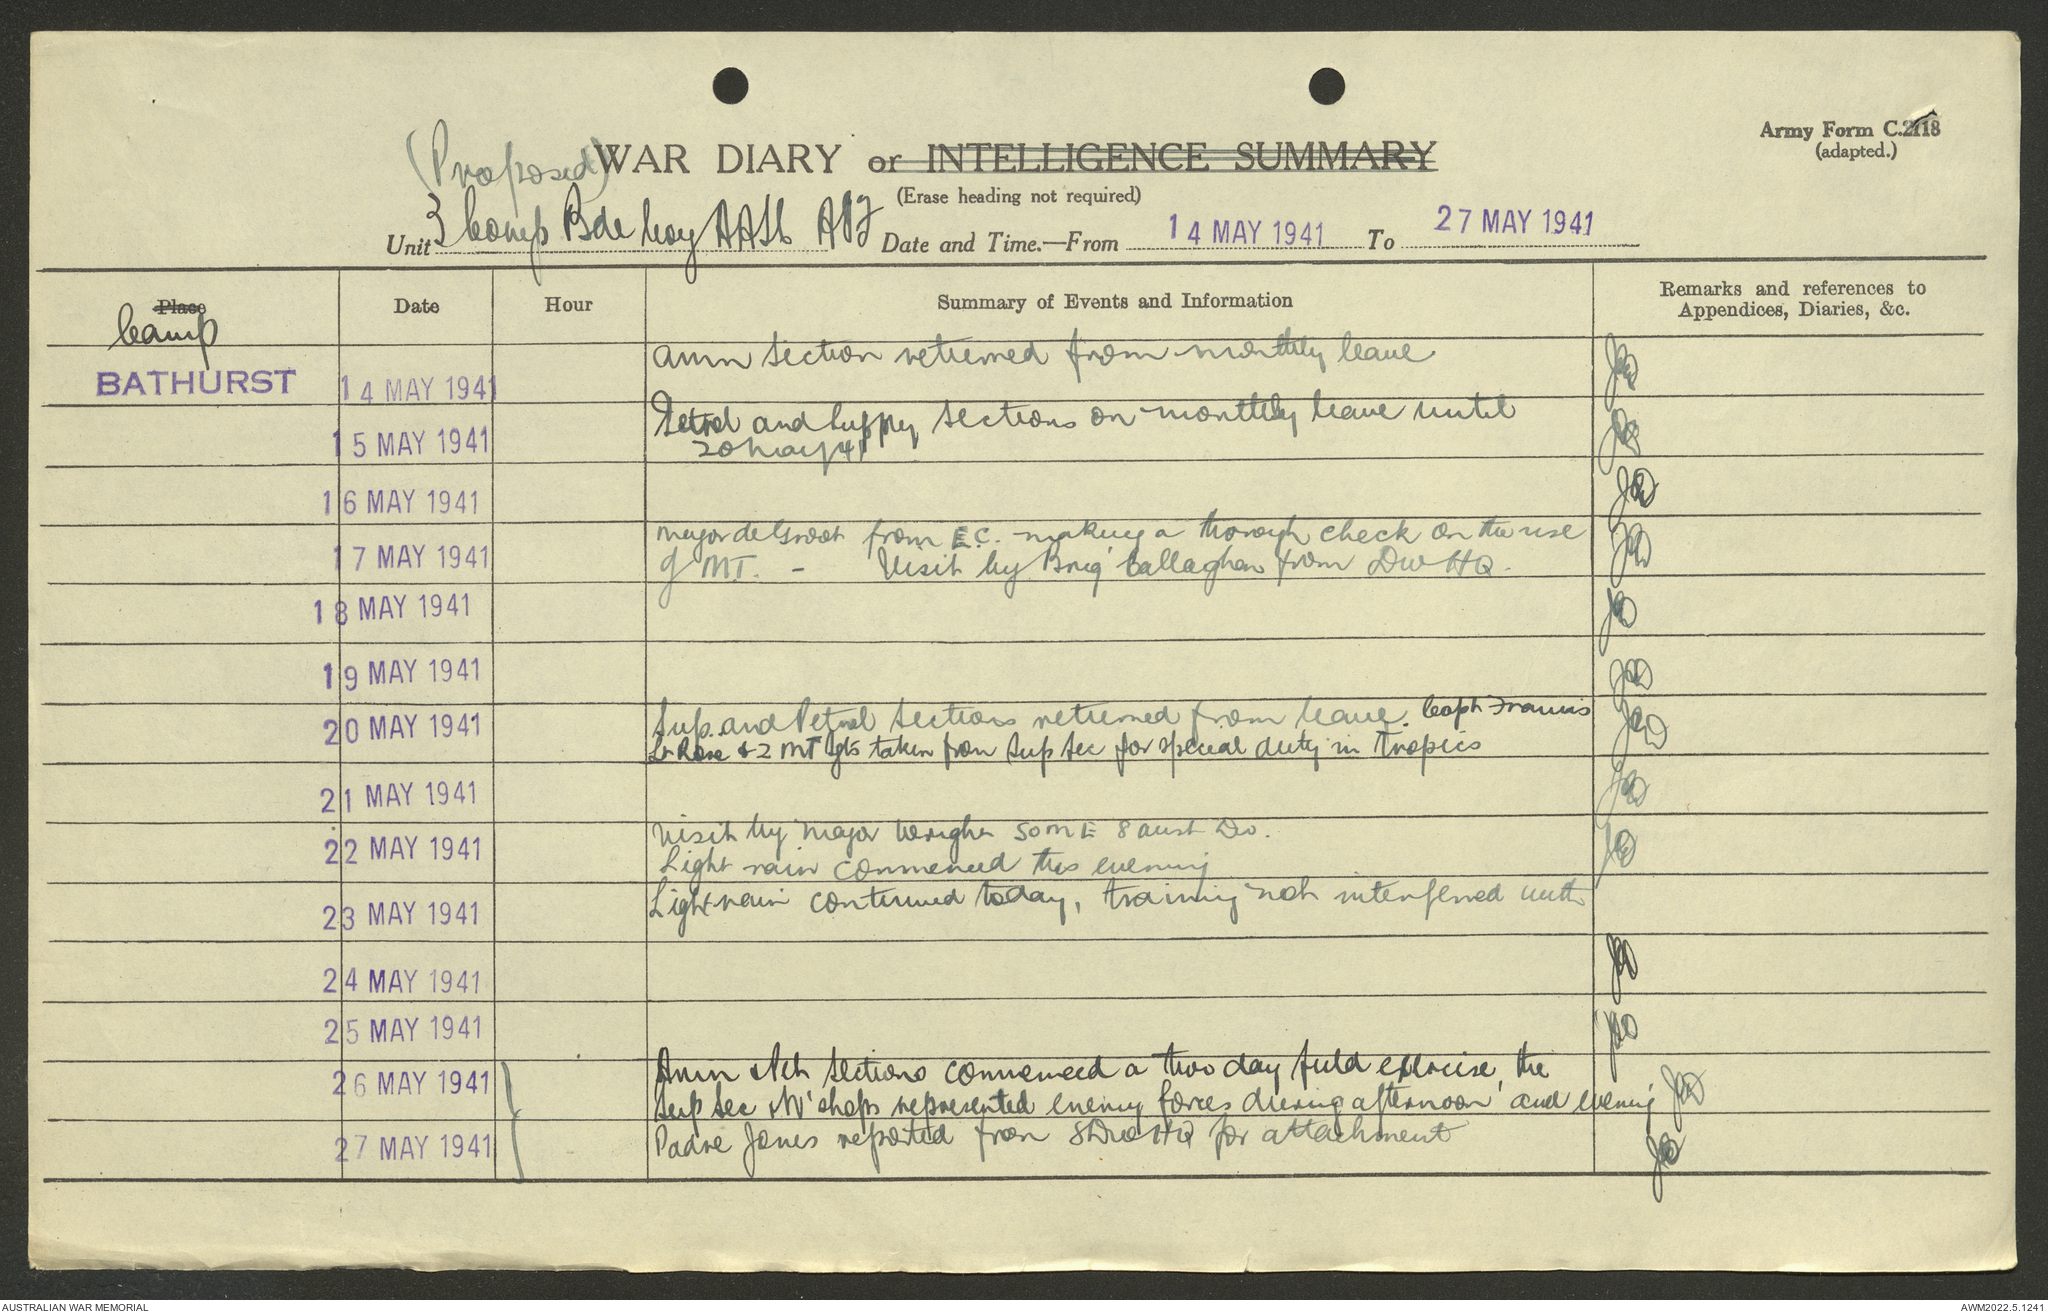 Army Form C.2118
(adapted.)
(Proposed) WAR DIARY or INTELLIGENCE SUMMARY
(Erase heading not required)
Unit 3 Comp Bde Coy AASC AIF Date and Time.—From 14 MAY 1941 To 27 MAY 1941
Place Date Hour Summary of Events and Information Remarks and references to
Appendices, Diaries, &c.
Camp
BATHURST 14 MAY 1941 Amn section returned from monthly leave
15 MAY 1941 Petrol and Supply sections on monthly leave until
20 May 41
16 MAY 1941
17 MAY 1941 Major de Groot from E.C. making a thorough check on the use
of MT. - Visit by Brig Callaghan from Div HQ.
18 MAY 1941
19 MAY 1941
20 MAY 1941 Sup. and Petrol sections returned from leave. Capt Francis
Lt Rose & 2 MT Sgts taken from Sup Sec for special duty in Tropics
21 MAY 1941
22 MAY 1941 Visit by Major SOME 8 Aust Div.
Light rain commenced this evening
23 MAY 1941 Light rain continued today, training not interferred with
24 MAY 1941
25 MAY 1941
26 MAY 1941 Amn & Pet sections commenced a two day field exercise, the
Sup Sec & W'shops represented enemy forces during afternoon and evening
27 MAY 1941 Padre Jones reported from 8 Div HQ for attachment
AUSTRALIAN WAR MEMORIAL AWM2022.5.1241